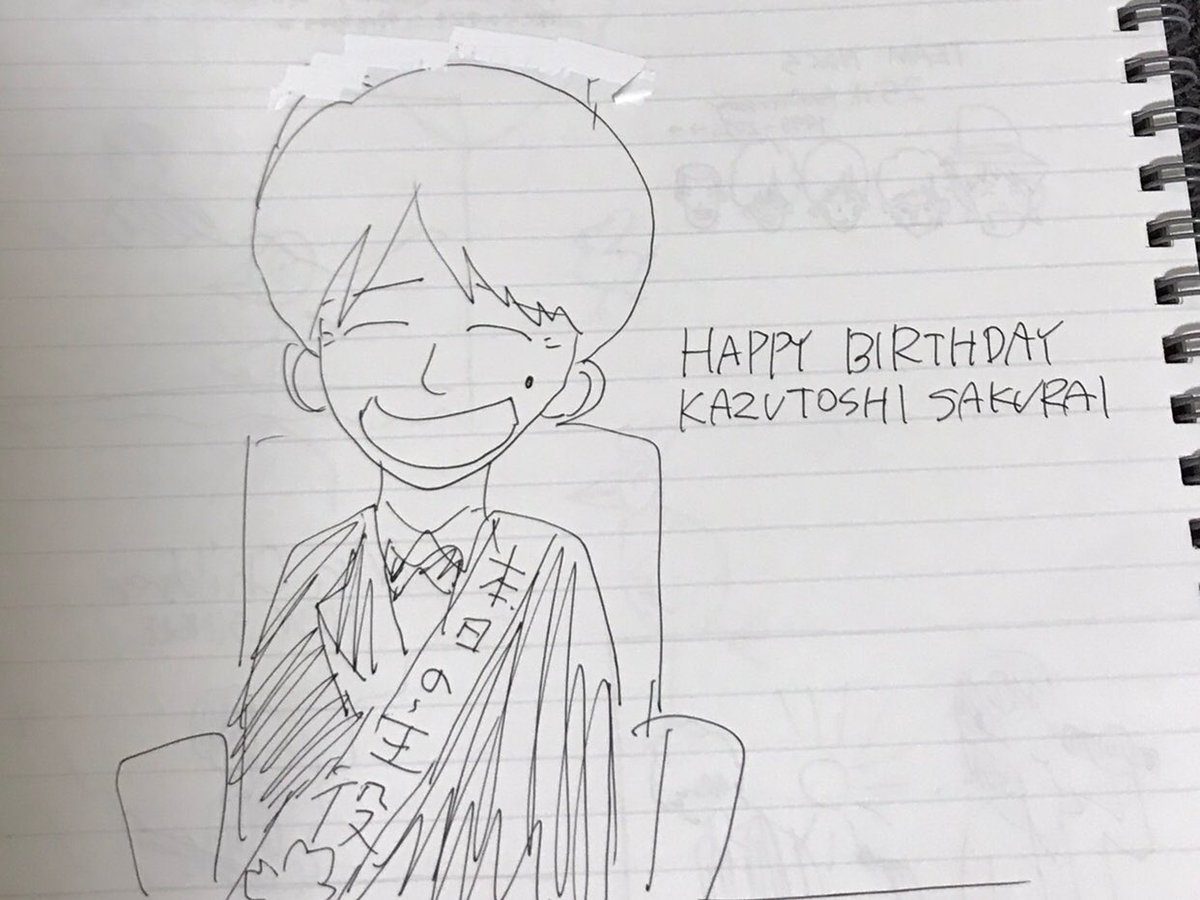 HAPPY BIRTHDAY
KAZUTOSHI SAKURAI
本日の主役